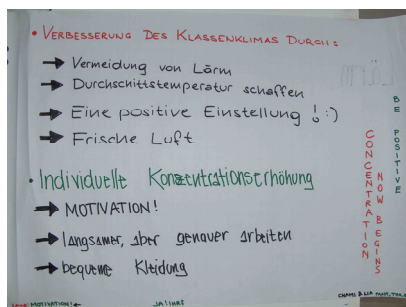 • VERBESSERUNG DES KLASSENKLIMAS DURCH:
→ Vermeidung von Lärm
→ Durchschittstemperatur schaffen
→ Eine positive Einstellung ! :)
→ Frische Luft
• Individuelle Konzentrationserhöhung
→ MOTIVATION!
→ langsamer, aber genauer arbeiten
→ bequeme Kleidung
BE POSITIVE
CONCENTRATION
NOW BEGINS
MOTIVATION! ←
CHAMI & LIA